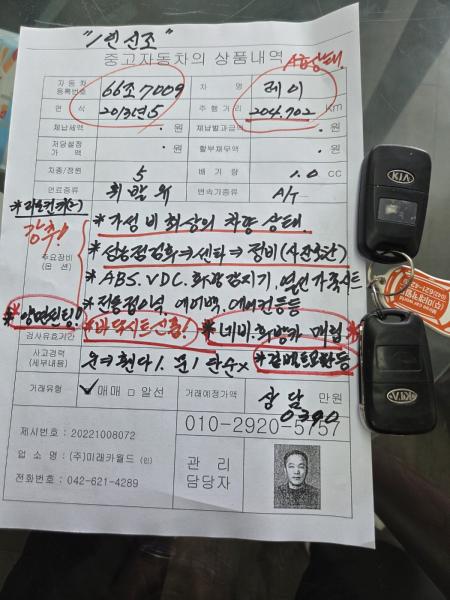 "1인 신조"
중고자동차의 상품내역
A급상태.
자동차등록번호 66조7009 차명 레이
연식 2013년5 주행거리 204.702 KM
체납세액 · 원 체납벌과금액 · 원
저당설정가액 · 원 할부채무액 · 원
차종/정원 5 배기량 1.0 cc
연료종류 휘발유 변속기종류 A/T
강추!
* 가성비 최상의 차량 상태.
주요장비(옵션)
* 성능점검후⇒센타⇒정비
* ABS. VDC. 후방감지기, 열선가죽시트
* 전동접이식, 에어백, 에어컨등등
* 양면썬팅!
* 바닥시트신품!
* 네비.후방카 매립
검사유효기간
사고경력(세부내용) 운여휀다1. 문1 단순x *
거래유형 ✓매매 □알선 거래예정가액 상담 만원
0390
010-2920-5757
제시번호 : 20221008072
업소명 : (주)미래카월드 (인)
전화번호 : 042-621-4289
관리담당자
KIA
KIA